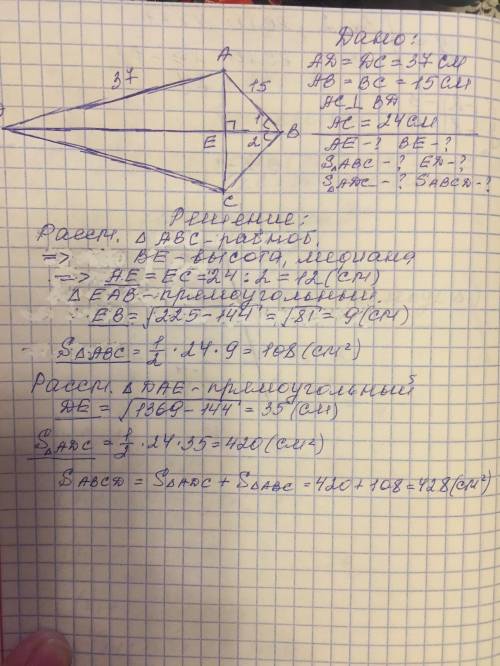 Дано:
AD = DC = 37 см
AB = BC = 15 см
AC ⊥ BD
AC = 24 см
AE - ? BE - ?
S△ABC - ? ED - ?
S△ADC - ? SABCD - ?
A
37
15
1
E
2
B
D
C
Решение:
Рассм. △ ABC - равноб.
=> BE - высота, медиана
=> AE = EC = 24 : 2 = 12 (см)
△ EAB - прямоугольный.
EB = √225 - 144 = √81 = 9 (см)
S△ABC = 1/2 · 24 · 9 = 108 (см²)
Рассм. △ DAE - прямоугольный
DE = √1369 - 144 = 35 (см)
S△ADC = 1/2 · 24 · 35 = 420 (см²)
SABCD = S△ADC + S△ABC = 420 + 108 = 428 (см²)